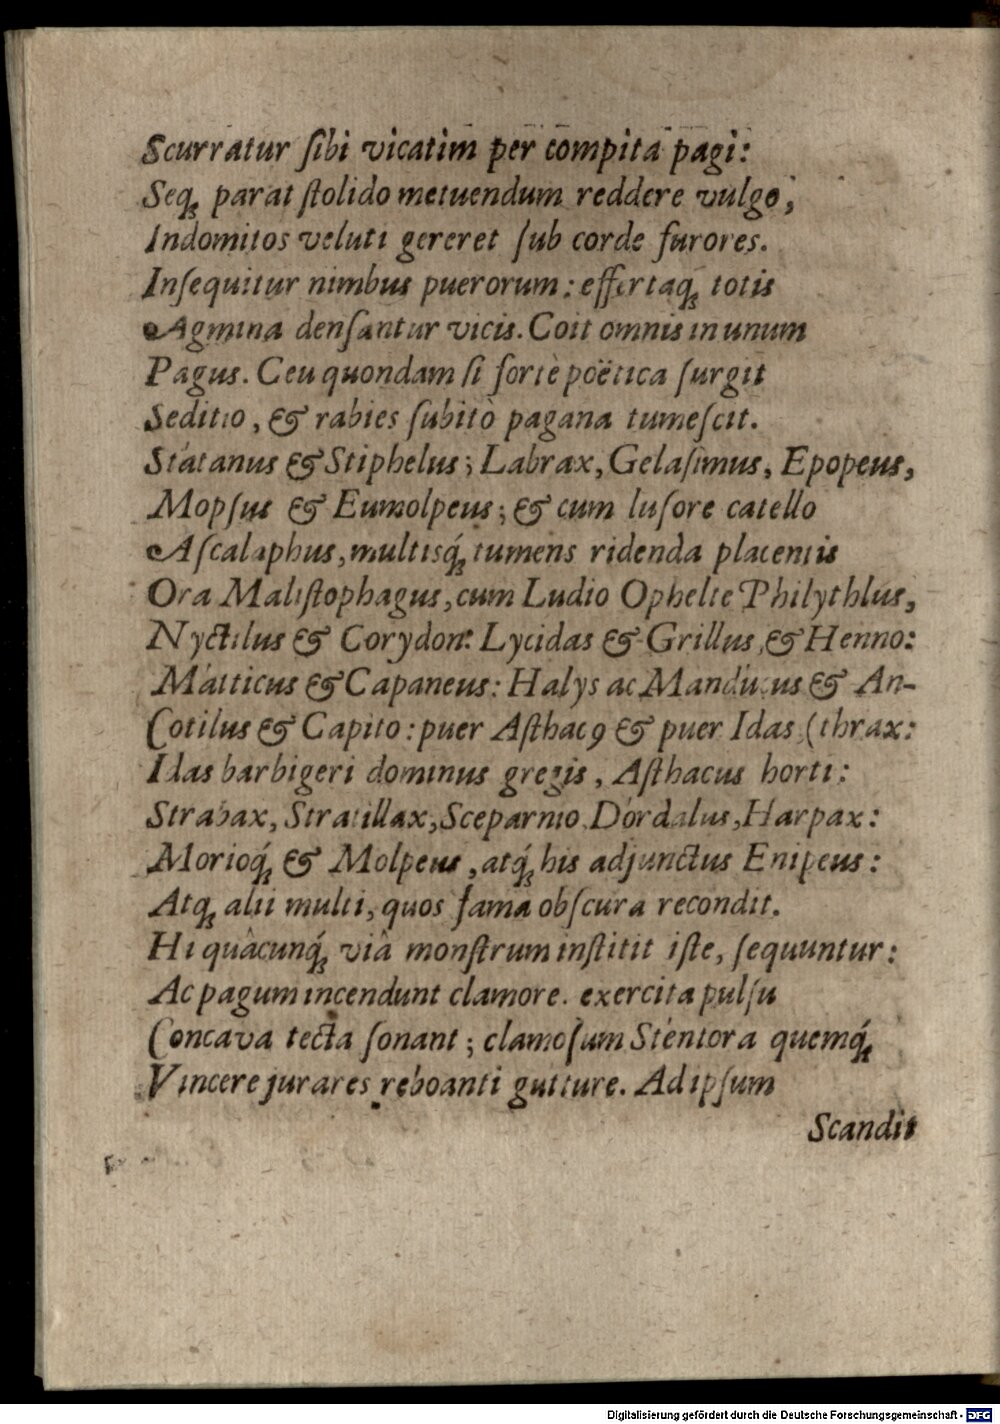 Scurratur ſibi vicatim per compita pagi:
Seq́ꝫ parat ſtolido metuendum reddere vulgo,
Indomitos veluti gereret ſub corde furores.
Inſequitur nimbus puerorum: effertaq́ꝫ totis
Agmina denſantur vicis. Coit omnis in unum
Pagus. Ceu quondam ſi fortè poëtica ſurgit
Seditio, & rabies ſubitò pagana tumeſcit.
Statanus & Stiphelus; Labrax, Gelaſimus, Epopeus,
Mopſus & Eumolpeus; & cum luſore catello
Aſcalaphus, multisq́ꝫ tumens ridenda placentis
Ora Maliſtophagus, cum Ludio Ophelte Philythlus,
Nyctilus & Corydon: Lycidas & Grillus, & Henno:
Matticus & Capaneus: Halys ac Manducus & An-
Cotilus & Capito: puer Aſthacꝯ & puer Idas (thrax:
Idas barbigeri dominus gregis, Aſthacus horti:
Strabax, Stratillax, Sceparnio, Dordalus, Harpax:
Morioq́ꝫ & Molpeus, atq́ꝫ his adjunctus Enipeus:
Atq́ꝫ alii multi, quos fama obſcura recondit.
Hi quâcunq́ꝫ viâ monſtrum inſtitit iſte, ſequuntur:
Ac pagum incendunt clamore. exercita pulſu
Concava tecta ſonant; clamoſum Stentora quemq́ꝫ
Vincere jurares reboanti gutture. Ad ipſum
Scandit
Digitalisierung gefördert durch die Deutsche Forschungsgemeinschaft - DFG